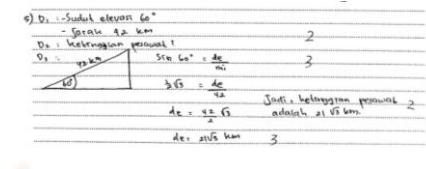 5) D₁ : - Sudut elevasi 60°
- Jarak 42 km
D₂ : ketinggian pesawat ?
D₃ :
42 km
60°
sin 60° = de/mi
½√3 = de/42
de = 42/2 √3
de = 21√3 km
Jadi, ketinggian pesawat
adalah 21 √3 km.
2
3
2
3